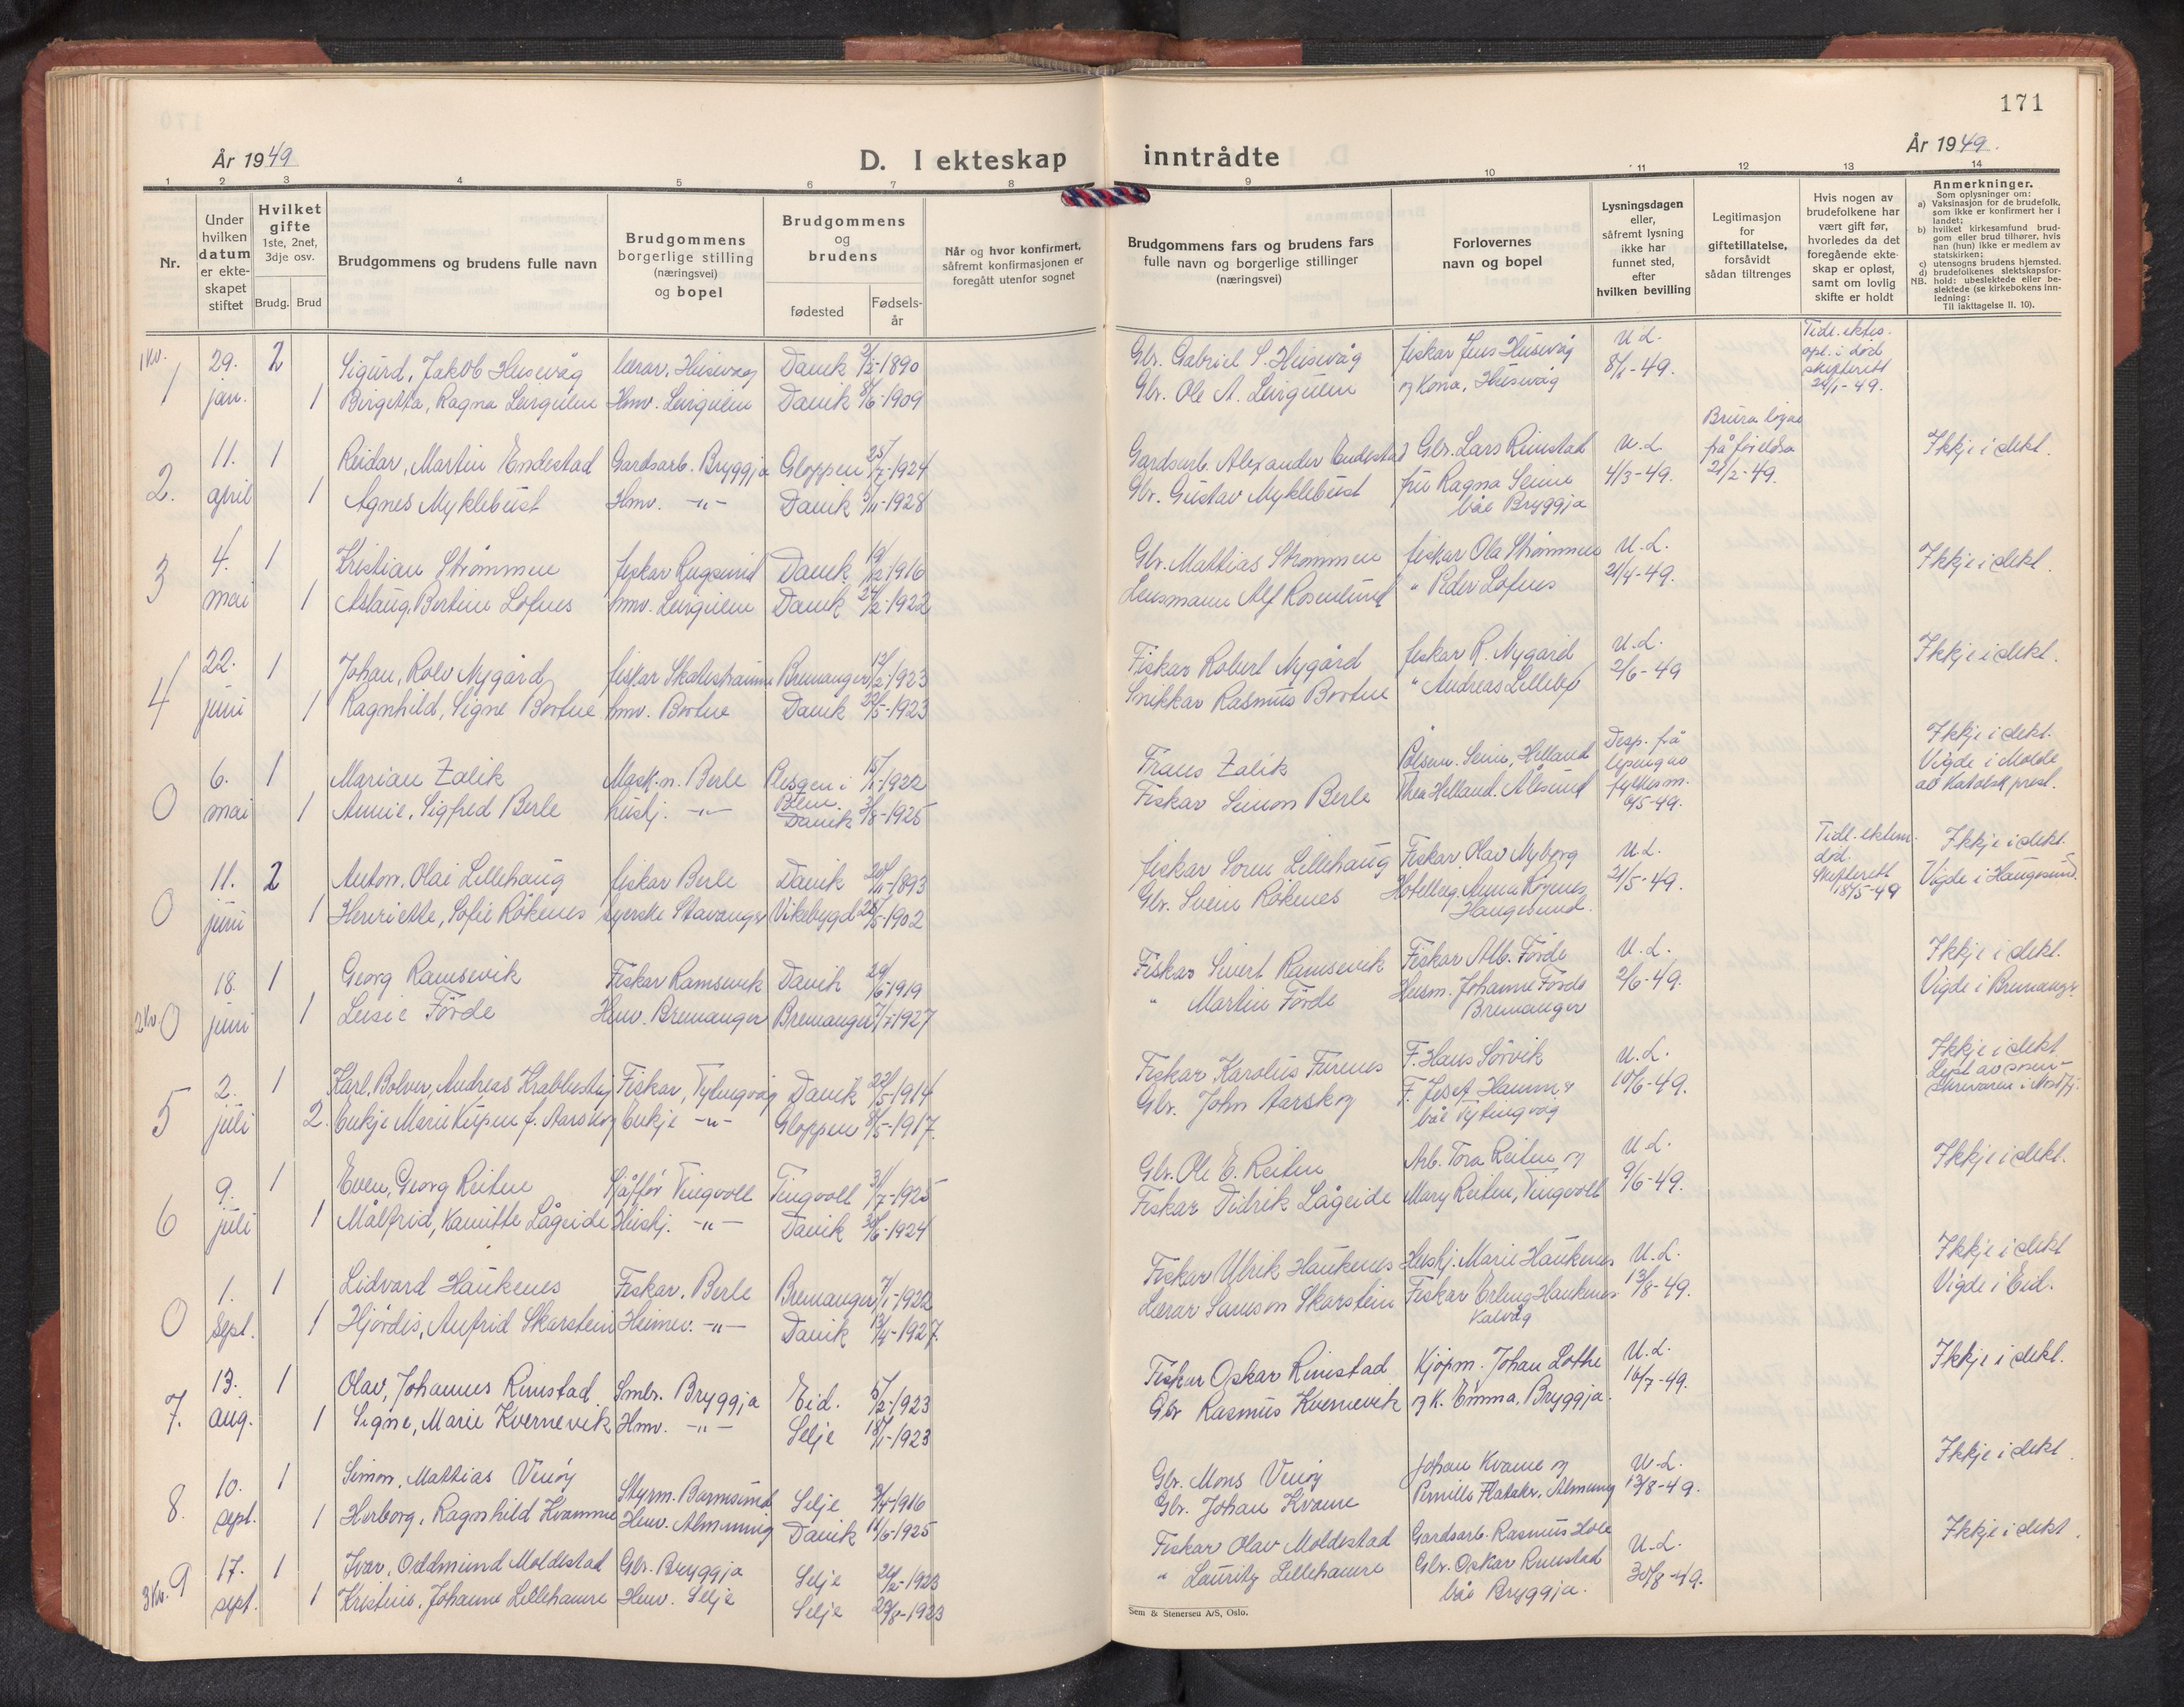 171
År 1949
D. I ekteskap inntrådte
År 1949.
1 2 3 4 5 6 7 8 9 10 11 12 13 14
Nr.
Under hvilken datum er ekteskapet stiftet
Hvilket gifte 1ste, 2net, 3dje osv.
Brudg. Brud
Brudgommens og brudens fulle navn
Brudgommens borgerlige stilling (næringsvei) og bopel
Brudgommens og brudens
fødested
Fødselsår
Når og hvor konfirmert, såfremt konfirmasjonen er foregått utenfor sognet
Brudgommens fars og brudens fars fulle navn og borgerlige stillinger (næringsvei)
Forlovernes navn og bopel
Lysningsdagen eller, såfremt lysning ikke har funnet sted, efter hvilken bevilling
Legitimasjon for giftetillatelse, forsåvidt sådan tiltrenges
Hvis nogen av brudefolkene har vært gift før, hvorledes da det foregående ekteskap er opløst, samt om lovlig skifte er holdt
Anmerkninger.
Som oplysninger om:
a) Vaksinasjon for de brudefolk, som ikke er konfirmert her i landet;
b) hvilket kirkesamfund brudgom eller brud tilhører, hvis han (hun) ikke er medlem av statskirken;
c) utensogns brudens hjemsted.
d) brudefolkenes slektskapsforhold: ubeslektede eller beslektede (se kirkebokens innledning:
NB. Til iakttagelse II. 10).
1 kv.
1 29. jan. 2 Sigurd, Jakob Husevåg lærar, Husevåg Davik 1890 Gbr. Gabriel S. Husevåg fiskar Jens Husevåg U.L. Tidl. ektes. opl. i død
1 Birgitta, Ragna Leirgulen Hmv. Leirgulen Davik 8/6-1909 Gbr. Ole A. Leirgulen og Kona, Husevåg 8/1-49. skifterett 24/1-49.
2. 11. april 1 Reidar, Martin Endestad Gardsarb. Bryggja Gloppen 1924 Gardsarb. Alexander Endestad Gbr. Lars Rimstad U.L. Brura løyve frå foreldra Ikkje i slekt.
1 Agnes Myklebust Hmv. -"- Davik 1928 Gbr. Gustav Myklebust fru Ragna Seime båe Bryggja 4/3-49. 21/2-49.
3 4. mai 1 Kristian Strømmen fiskar Rugsund Davik 19/12-1916 Gbr. Mattias Strømmen fiskar Ola Strømmen U.L. Ikkje i slekt.
1 Aslaug, Bertine Lofnes hmv. Leirgulen Davik 1922 Lensmann Alf Rosenlund " Peder Lofnes 21/4-49.
4 22. juni 1 Johan, Rolv Nygård fiskar Skatestraumen Bremanger 1923 Fiskar Robert Nygård fiskar R. Nygård U.L. Ikkje i slekt.
1 Ragnhild, Signe Bortne hmv. Bortne Davik 22/5-1923 Snikkar Rasmus Bortne " Andreas Lillebø 2/6-49
0 6. mai 1 Marian Zalik Mask.m. Berle 1922 Frans Zalik Pølsem. Helland Disp. frå Ikkje i slekt.
1 Annie, Sigfred Berle hushj. -"- Davik 3/8-1925 Fiskar Simon Berle Thea Helland. Ålesund fylkesm. 6/5-49. Vigde i Molde av katolsk prest.
0 11. juni 2 Anton, Olai Lillehaug fiskar Berle Davik 1893 fiskar Søren Lillehaug Fiskar Olav Nyborg U.L. Tidl. ektem. død. Ikkje i slekt.
1 Henriette, Sofie Røkenes syerske Stavanger Vikebygd 1902 Gbr. Svein Røkenes Haugesund. 21/5-49. Skifterett 18/5-49 Vigde i Haugesund.
2 kv 0 18. juni 1 Georg Ramsevik Fiskar Ramsevik Davik 29/6-1919 Fiskar Sivert Ramsevik Fiskar Alb. Førde U.L. Ikkje i slekt.
1 Førde Hmv. Bremanger Bremanger 1927 " Martin Førde Husm. Johanne Førde Bremanger 2/6-49. Vigde i Bremanger.
5 2. juli 1 Karl, Bolver, Andreas Krabbestig Fiskar, Tytingvåg Davik 22/5-1914 Fiskar Karolus Furenes F. Hans Sørvik U.L. Ikkje i slekt
2. Enkje Marie Kupen f. Aarskog Enkje -"- Gloppen 1917. Gbr. John Aarskog F. Josef Hamnen båe Tytingvåg 10/6-49.
6 9. juli 1 Even, Georg Reiten Sjåfför Tingvoll Tingvoll 31/7-1925 Gbr. Ole E. Reiten Arb. Tora Reiten og U.L. Ikkje i slekt.
1 Målfrid, Kamitte Lågeide Hushj. -"- Davik 30/6-1924 Fiskar Didrik Lågeide Mary Reiten, Tingvoll 9/6-49.
0 1. sept. 1 Lidvard Haukenes Fiskar, Berle Bremanger 7/1-1922 Fiskar Ulrik Haukenes Hushj. Marie Haukenes U.L. Ikkje i slekt
1 Hjørdis, Anfrid Skarstein Heimev. -"- Davik 13/4-1927. Lærar Samson Skarstein Fiskar Erling Haukenes Kalvåg 13/8-49. Vigde i Eid.
7. 13. aug. 1 Olav, Johannes Rimstad Smbr. Bryggja Eid. 5/2-1923 Fiskar Oskar Rimstad Kjöpm. Johan Lothe U.L. Ikkje i slekt.
1 Signe, Marie Kvernevik Hmv. -"- Selje 18/1-1923 Gbr Rasmus Kvernevik og K. Emma, Bryggja. 16/7-49.
8. 10. sept. 1 Simon, Mattias Venøy Styrm. Barmsund Selje 1916 Gbr. Mons Venøy Johan Kvame og U.L. Ikkje i slekt.
1 Herborg, Ragnhild Kvamme Hmv. Almenning Davik 11/6-1925 Gbr. Johan Kvame Pernille Flataker, Almenning 13/8-49.
3 Kv. 9 17. sept. 1 Ivar, Oddmund Moldestad Gbr. Bryggja Selje 1923 Fiskar Olav Moldestad Gardsarb. Rasmus Hole U.L. Ikkje i slekt.
1 Kristine, Johanne Lillehamre Hmv. Selje Selje 29/8-1923 " Lauritz Lillehamre Gbr. Oskar Rimstad båe Bryggja. 30/8-49.
Sem & Stenersen A/S, Oslo.